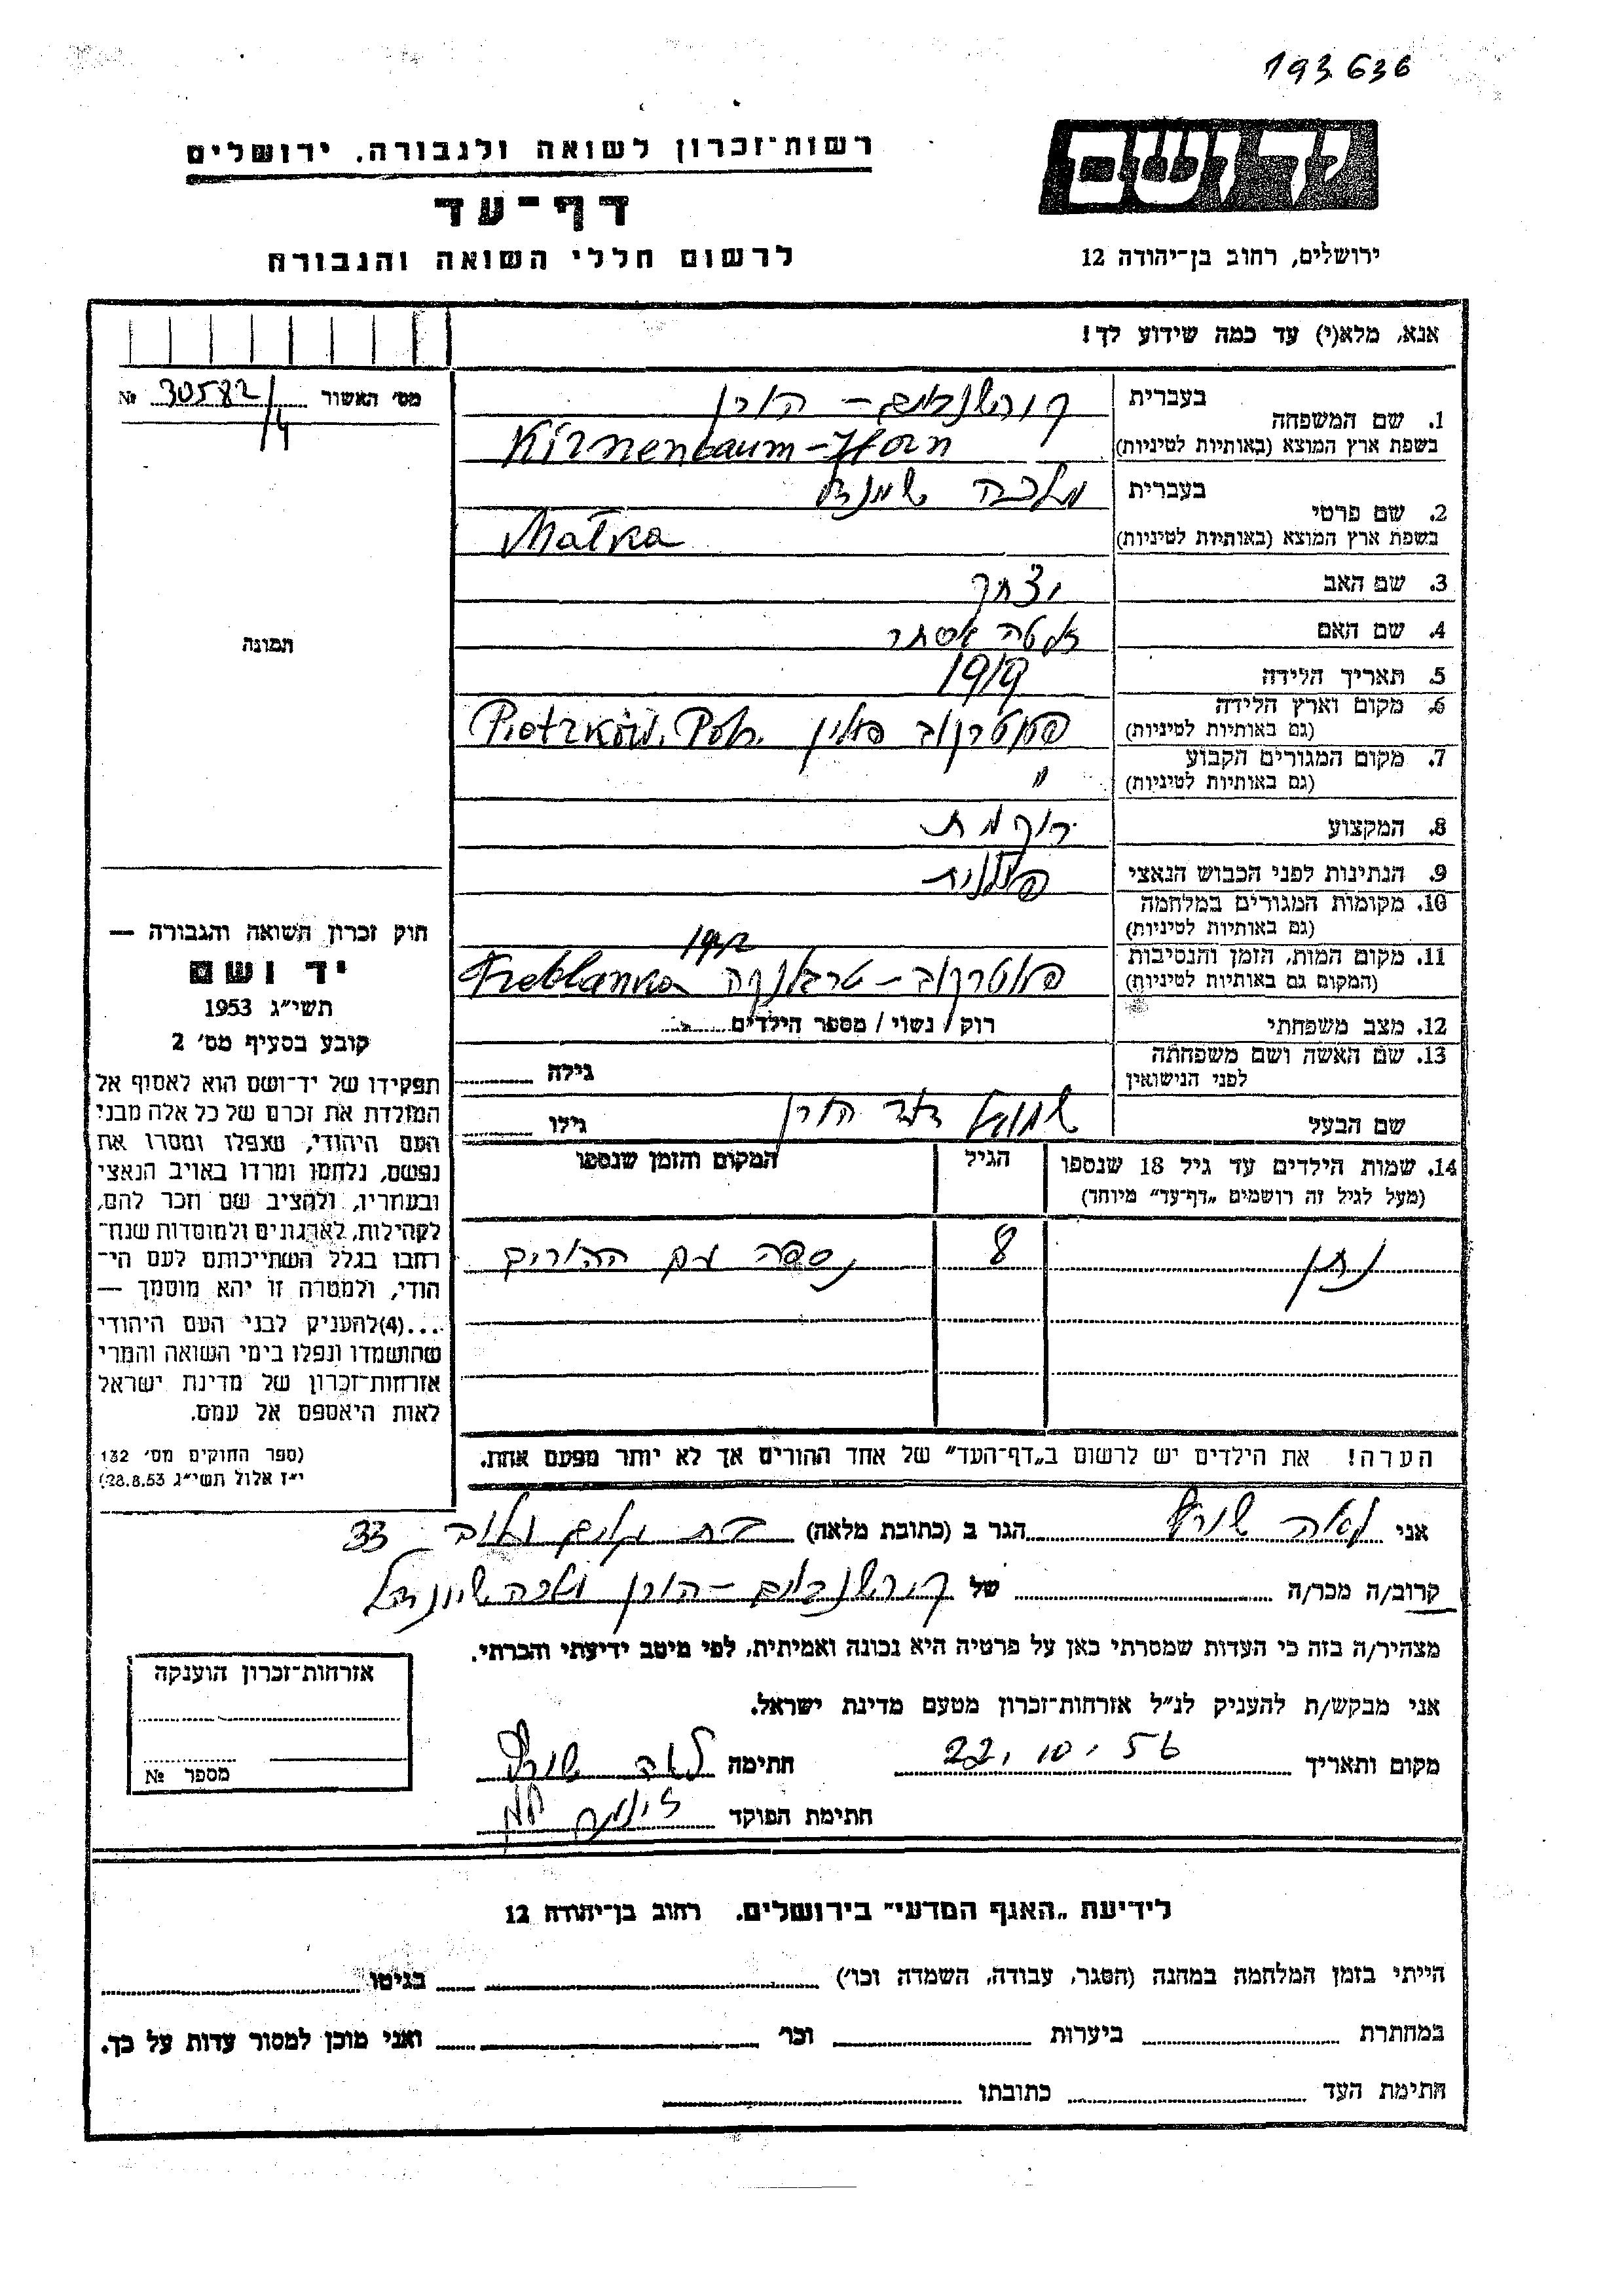 193636
רשות־זכרון לשואה ולגבורה, ירושלים
דף־עד
לרשום חללי השואה והגבורה
יד ושם
ירושלים, רחוב בן־יהודה 12
אנא, מלא(י) עד כמה שידוע לך!
מס׳ האשור 30582/4 №
1. שם המשפחה
בעברית קירשנבוים – הורן
בשפת ארץ המוצא (באותיות לטיניות) Kirnenbaum – Horn
2. שם פרטי
בעברית מלכה
בשפת ארץ המוצא (באותיות לטיניות) Malka
3. שם האב יצחק
4. שם האם אסתר
5. תאריך הלידה 1919
6. מקום וארץ הלידה
(גם באותיות לטיניות) פיוטרקוב פולין Piotrków, Pol.
7. מקום המגורים הקבוע
(גם באותיות לטיניות) "
8. המקצוע רוקמת
9. הנתינות לפני הכבוש הנאצי פולנית
10. מקומות המגורים במלחמה
(גם באותיות לטיניות)
11. מקום המות, הזמן והנסיבות 1942
(המקום גם באותיות לטיניות) פיוטרקוב – טרבלנקה Treblanka
12. מצב משפחתי רוק / נשוי / מספר הילדים
13. שם האשה ושם משפחתה
לפני הנישואין גילה
שם הבעל שמואל דוד הורן גילו
14. שמות הילדים עד גיל 18 שנספו הגיל המקום והזמן שנספו
(מעל לגיל זה רושמים „דף־עד" מיוחד)
נתן 8 נספה עם ההורים
הערה! את הילדים יש לרשום ב„דף־העד" של אחד ההורים אך לא יותר מפעם אחת.
תמונה
חוק זכרון השואה והגבורה —
יד ושם
תשי״ג 1953
קובע בסעיף מס׳ 2
תפקידו של יד־ושם הוא לאסוף אל
המולדת את זכרם של כל אלה מבני
העם היהודי, שנפלו ומסרו את
נפשם, נלחמו ומרדו באויב הנאצי
ובעוזריו, ולהציב שם וזכר להם,
לקהילות, לארגונים ולמוסדות שנח־
רחבו בגלל השתייכותם לעם הי־
הודי, ולמטרה זו יהא מוסמך —
...(4)להעניק לבני העם היהודי
שהושמדו ונפלו בימי השואה והמרי
אזרחות־זכרון של מדינת ישראל
לאות היאספם אל עמם.
(ספר החוקים מס׳ 132
י״ז אלול תשי״ג 28.8.53)
אני לאה הגר ב (כתובת מלאה) בת גלים 33
קרוב/ה מכר/ה של קירשנבוים – הורן מלכה
מצהיר/ה בזה כי העדות שמסרתי כאן על פרטיה היא נכונה ואמיתית, לפי מיטב ידיעתי והכרתי.
אני מבקש/ת להעניק לנ״ל אזרחות־זכרון מטעם מדינת ישראל.
מקום ותאריך 22.10.56 חתימה לאה
חתימת הפוקד
אזרחות־זכרון הוענקה
מספר №
לידיעת „האגף המדעי" בירושלים, רחוב בן־יהודה 12
הייתי בזמן המלחמה במחנה (הסגר, עבודה, השמדה וכו׳) בגיטו
במחתרת ביערות וכו׳ ואני מוכן למסור עדות על כך.
חתימת העד כתובתו